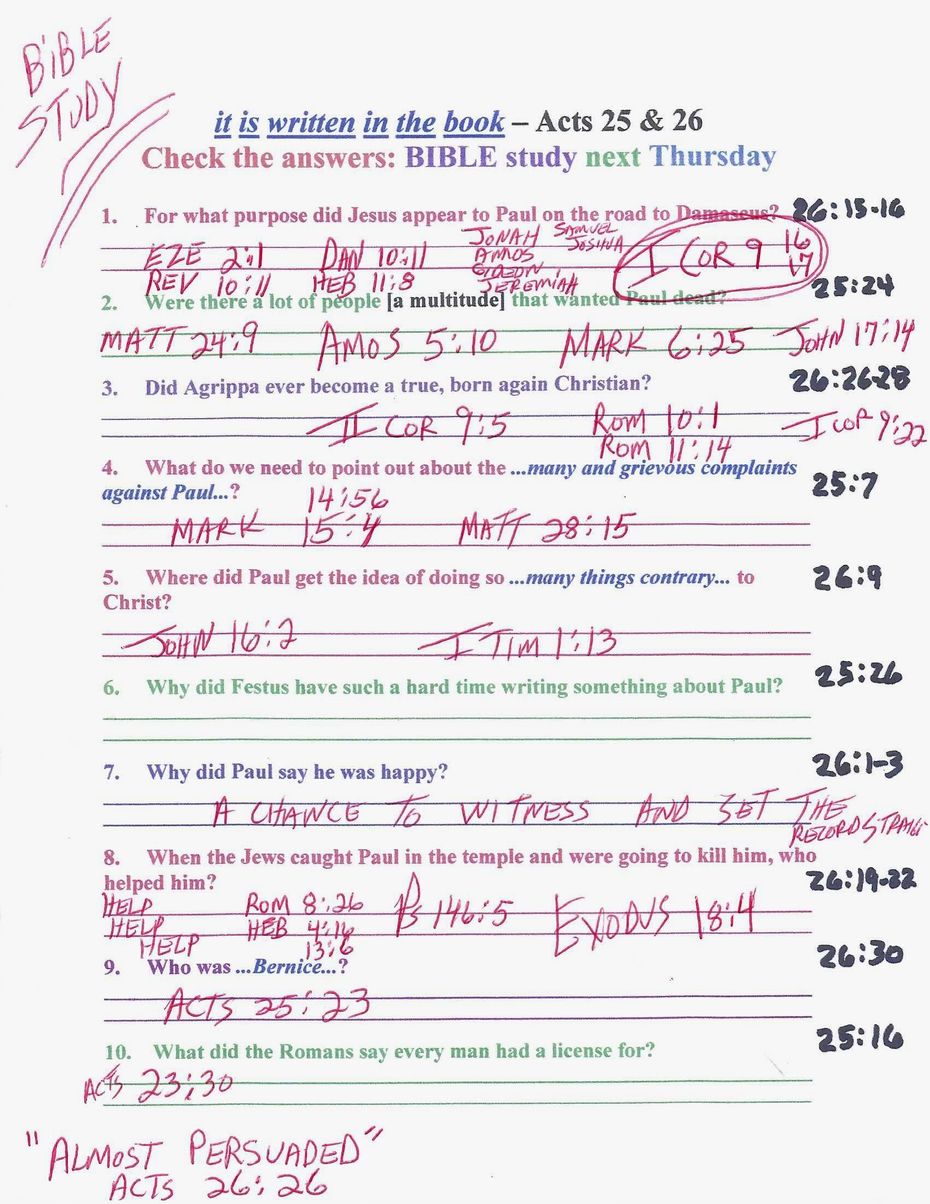 BIBLE
STUDY
it is written in the book – Acts 25 & 26
Check the answers: BIBLE study next Thursday
1. For what purpose did Jesus appear to Paul on the road to Damascus? 26:15-16
EZE 2:1 DAN 10:11 JONAH SAMUEL
AMOS JOSHUA
GIDEON I COR 9 16
17
REV 10:11 HEB 11:8 JEREMIAH
2. Were there a lot of people [a multitude] that wanted Paul dead? 25:24
MATT 24:9 AMOS 5:10 MARK 6:25 JOHN 17:14
3. Did Agrippa ever become a true, born again Christian? 26:26-28
II COR 9:5 ROM 10:1 I COR 9:22
ROM 11:14
4. What do we need to point out about the ...many and grievous complaints
against Paul...? 25:7
14:56
MARK 15:4 MATT 28:15
5. Where did Paul get the idea of doing so ...many things contrary... to 26:9
Christ?
JOHN 16:2 I TIM 1:13
6. Why did Festus have such a hard time writing something about Paul? 25:26
7. Why did Paul say he was happy? 26:1-3
A CHANCE TO WITNESS AND SET THE
RECORD STRAIG
8. When the Jews caught Paul in the temple and were going to kill him, who
helped him? 26:19-22
HELP ROM 8:26 Ps 146:5 EXODUS 18:4
HELP HEB 4:16
HELP 13:6
9. Who was ...Bernice...? 26:30
ACTS 25:23
10. What did the Romans say every man had a license for? 25:16
ACTS 23:30
"ALMOST PERSUADED"
ACTS 26:26